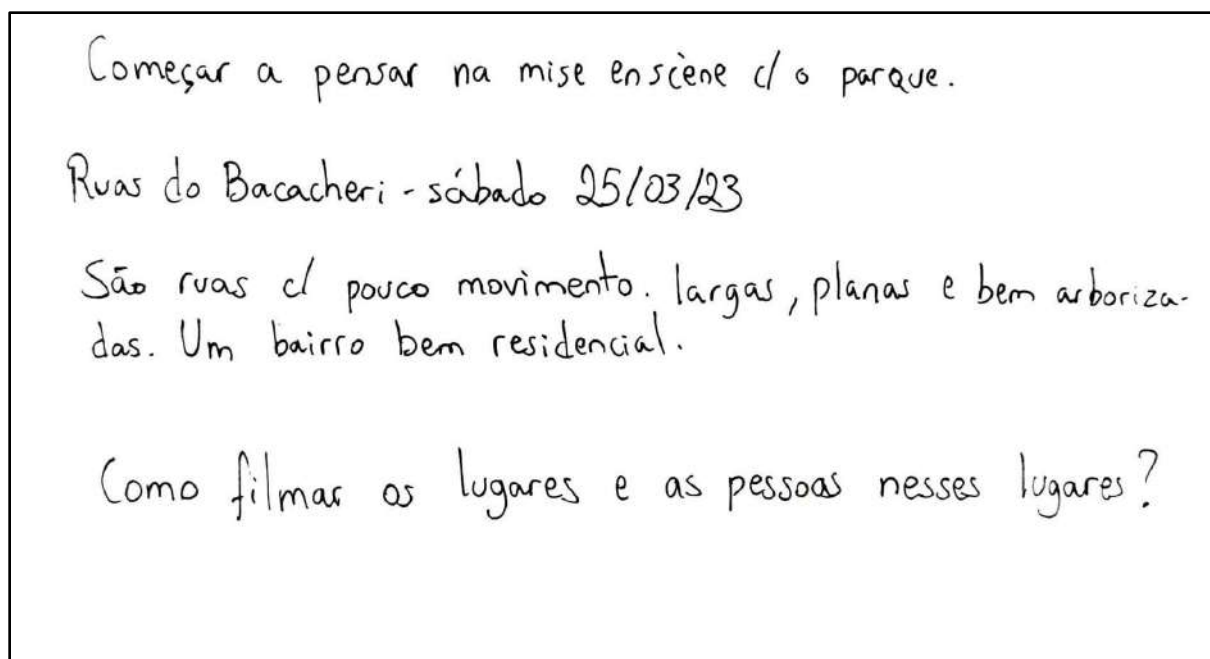 Começar a pensar na mise en scène c/ o parque.
Ruas do Bacacheri - sábado 25/03/23
São ruas c/ pouco movimento. largas, planas e bem arboriza-
das. Um bairro bem residencial.
Como filmar os lugares e as pessoas nesses lugares?